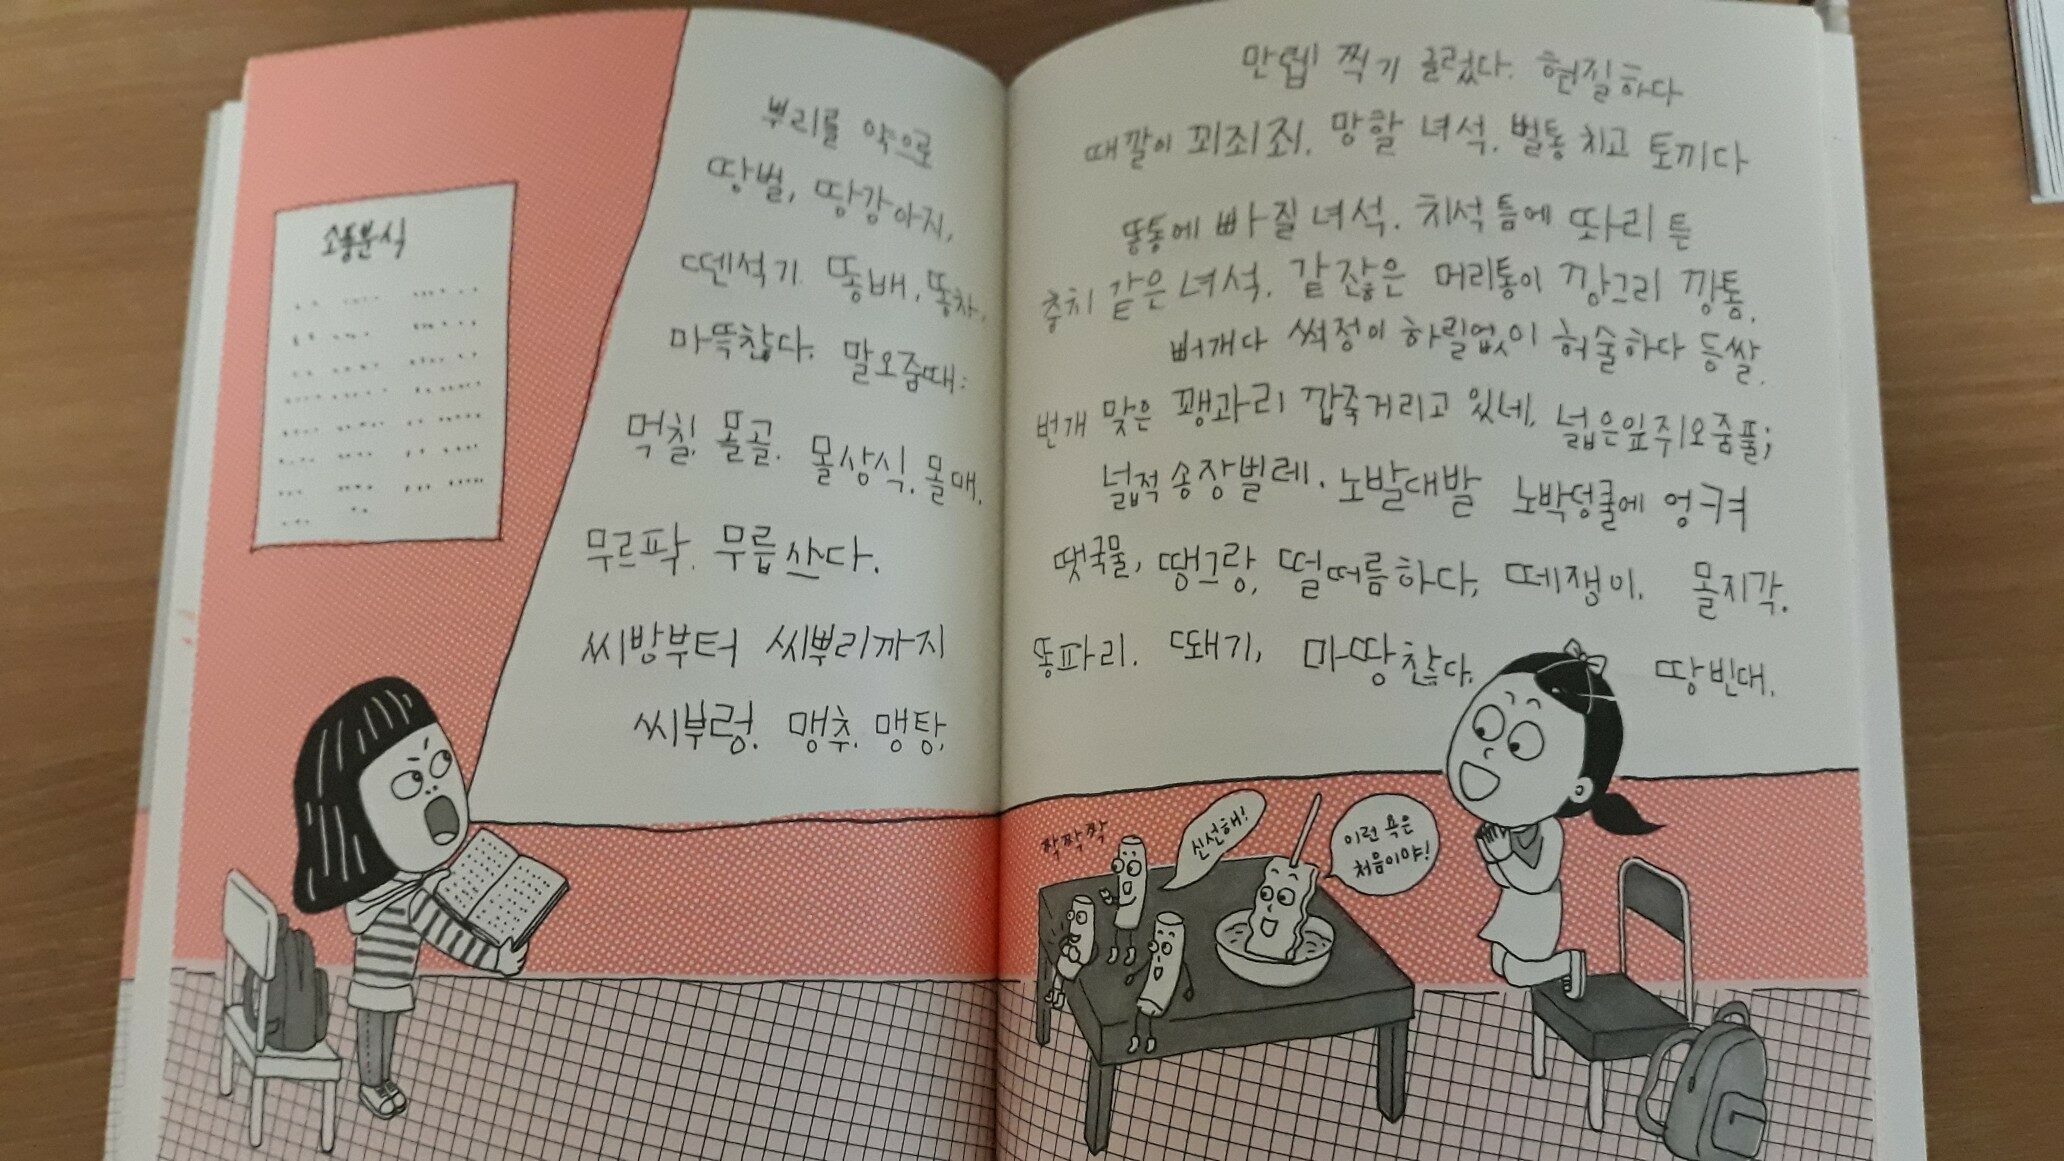 소통분식
뿌리를 약으로
땅벌, 땅강아지,
뗀석기. 똥배, 똥차,
마뜩찮다. 말오줌때:
먹칠. 몰골. 몰상식. 몰매.
무르팍. 무릅싼다.
씨방부터 씨뿌리까지
씨부렁. 맹추. 맹탕.
만렙 찍기 글렀다. 현질하다
때깔이 꾀죄죄. 망할 녀석. 벌통 치고 토끼다
똥통에 빠질 녀석. 치석 틈에 똬리 튼
충치 같은 녀석. 같잖은 머리통이 깡그리 깡통.
뻐개다 썩정이 하릴없이 허술하다 등쌀.
번개 맞은 꽹과리 깝죽거리고 있네, 넓은잎쥐오줌풀;
넓적 송장벌레. 노발대발 노박덩쿨에 엉켜
땟국물, 땡그랑, 떨떠름하다, 떼쟁이. 몰지각.
똥파리. 뙈기, 마땅찮다. 땅빈대.
짝짝짝
신선해!
이런 욕은
처음이야!